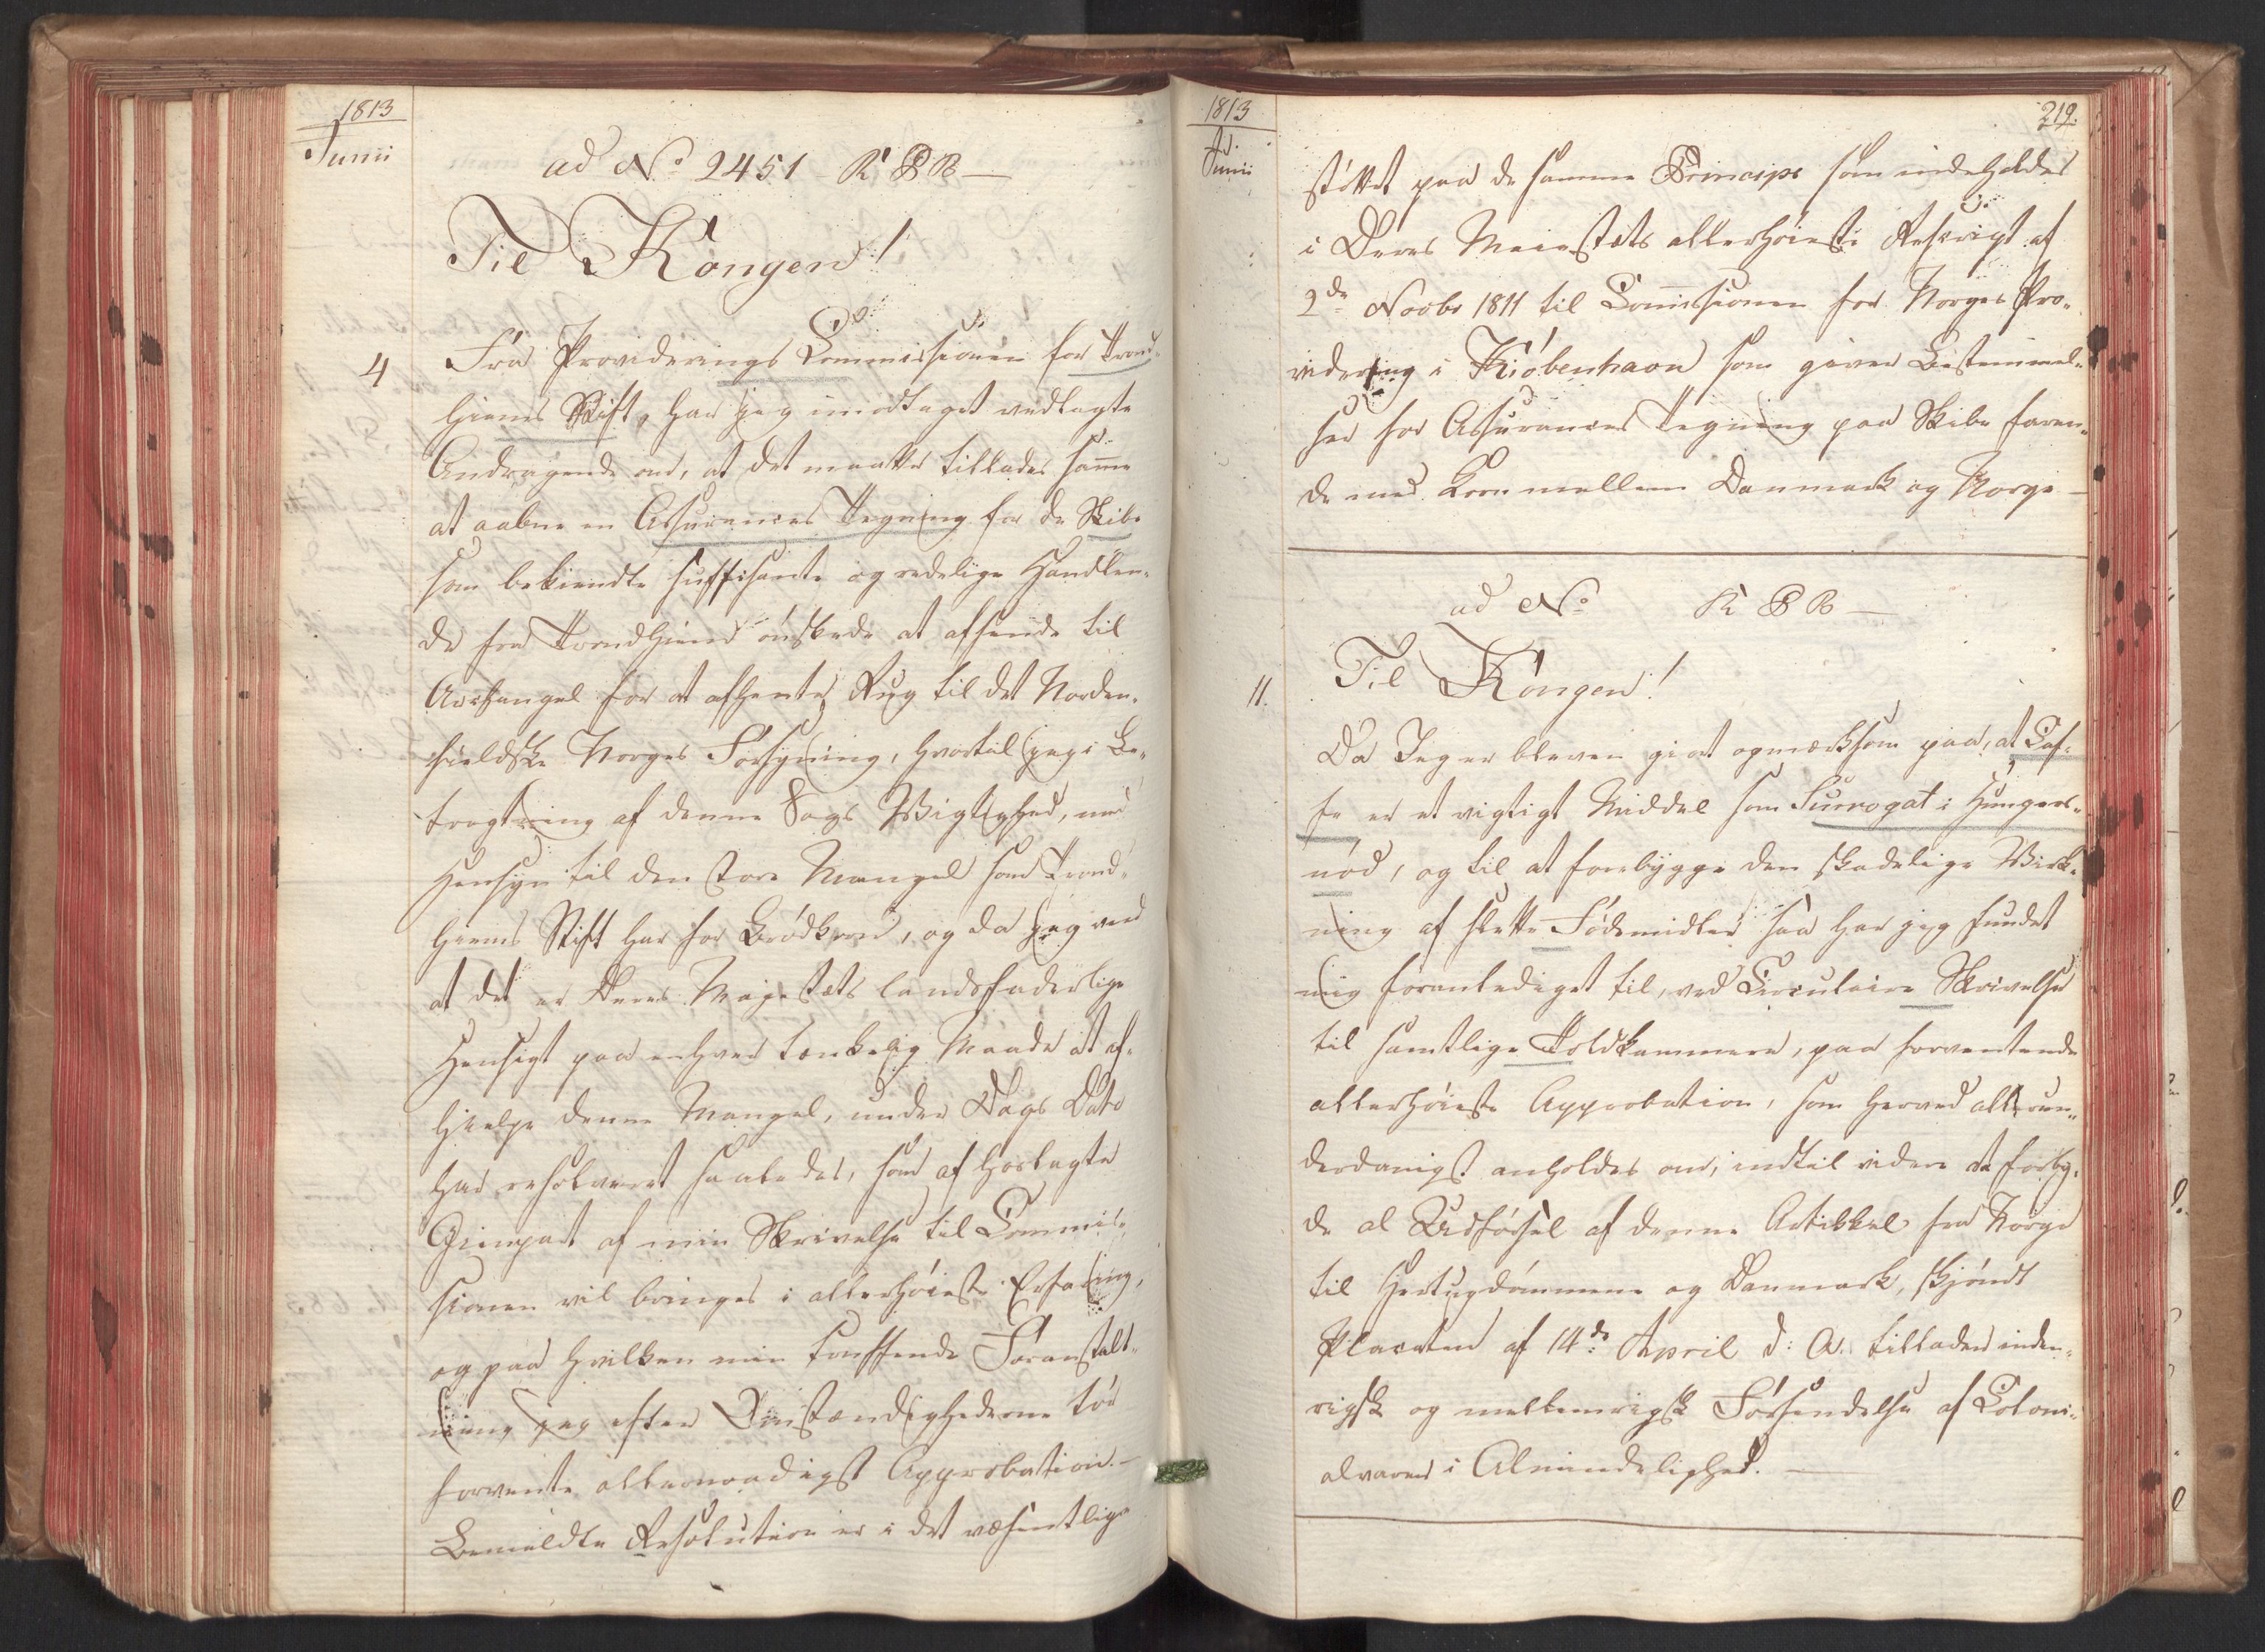 1813
Junii
ad No 2451 K P B —
Til Kongen!
4
Fra Providerings Commissionen for Trond-
hiems Stift, har jeg imodtaget vedlagte
Andragende om, at det maatte tillades samme
at aabne en Assurances Tegning for de Skibe
som bekiendte suffisante og redelige Handlen-
de fra Trondhiem ønskede at afsende til
Archangel for at afhente Rug til det Norden-
fieldske Norges Forsyning, hvortil jeg i Be-
tragtning af denne Sags Wigtighed, med
Hensyn til den store Mangel som Trond-
hiems Stift har for Brødkorn, og da jeg veed
at det er Deres Majestæts landsfaderlige
Hensigt paa enhver tænkelig Maade at af-
hielpe denne Mangel, under Dags Dato
har resolveret saaledes, som af hoslagte
Gienpart af min Skrivelse til Commis-
sionen vil bringes i allerhøieste Erfaring,
og paa hvilken min truffende Foranstalt-
ning jeg efter Omstændighederne tør
forvente allernaadigst Approbation. —
Bemeldte Resolution er i det væsentlige
1813
Junii
219.
støttet paa de samme Principe som indeholdes
i Deres Maiestæts allerhøieste Rescript af
2de Novbr 1811 til Commissionen for Norges Pro-
videring i Kiøbenhavn som giver Bestemmel-
ser for Assurances Tegning paa Skibe faren-
de med Korn mellem Danmark og Norge —
ad No K P B —
Til Kongen!
11.
Da Jeg er bleven giort opmærksom paa, at Caf-
fe er et vigtigt Middel som Surrogat i Hungers-
nød, og til at forebygge den skadelige Wirk-
ning af slette Fødemidler saa har jeg fundet
mig foranlediget til, ved Circulaire Skrivelse
til samtlige Toldkammere, paa forventende
allerhøieste Approbation, som herved allerun-
derdanigst anholdes om, indtil videre at forby-
de al Udførsel af denne Artikkel fra Norge
til Hertugdømmene og Danmark, skjøndt
Placaten af 14de April d: A. tillader inden-
rigsk og mellemrigsk Forsendelse af Coloni-
alvarer i Almindelighed. —